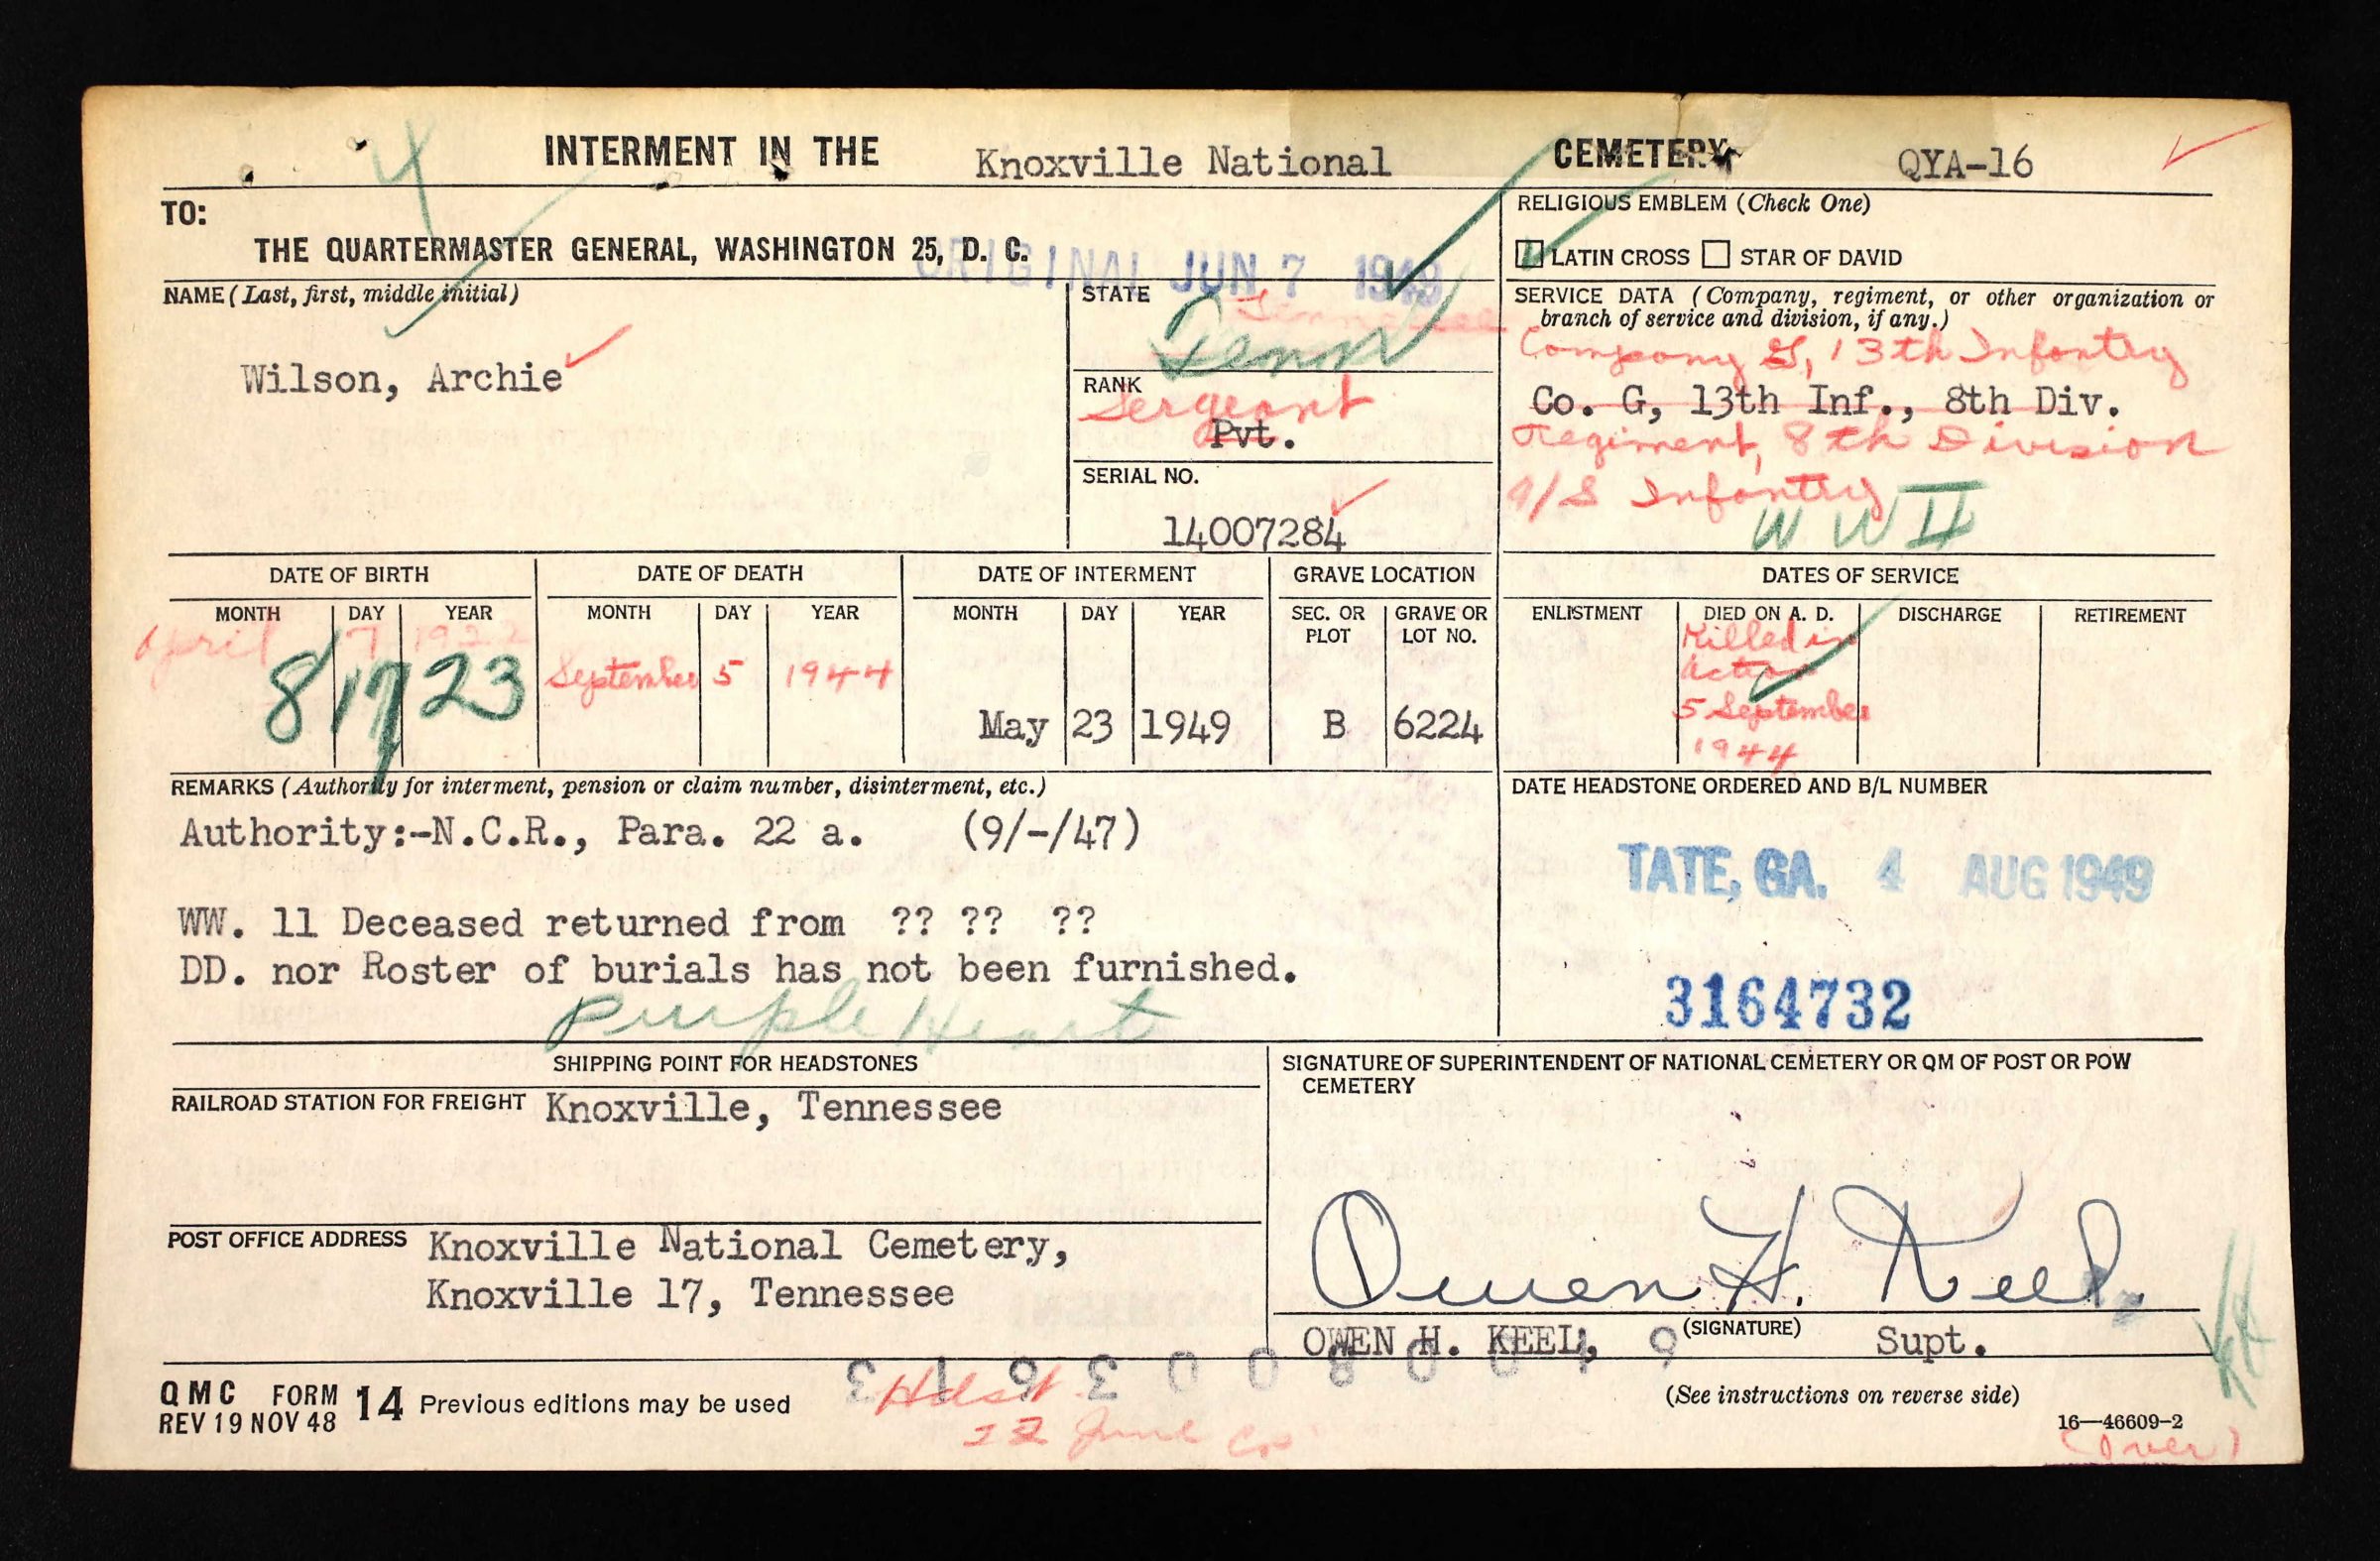 INTERMENT IN THE Knoxville National CEMETERY QYA-16
TO:
THE QUARTERMASTER GENERAL, WASHINGTON 25, D. C.
ORIGINAL JUN 7 1949
RELIGIOUS EMBLEM (Check One)
LATIN CROSS STAR OF DAVID
NAME (Last, first, middle initial)
Wilson, Archie
STATE
Tennessee
Tenn
RANK
Sergeant
Pvt.
SERIAL NO.
14007284
SERVICE DATA (Company, regiment, or other organization or
branch of service and division, if any.)
Company G, 13th Infantry
Co. G, 13th Inf., 8th Div.
Regiment, 8th Division
A/S Infantry
W W II
DATE OF BIRTH DATE OF DEATH DATE OF INTERMENT GRAVE LOCATION DATES OF SERVICE
MONTH DAY YEAR MONTH DAY YEAR MONTH DAY YEAR SEC. OR PLOT GRAVE OR LOT NO. ENLISTMENT DIED ON A. D. DISCHARGE RETIREMENT
April 7 1922
8 17 23 September 5 1944 May 23 1949 B 6224
Killed in
Action
5 September
1944
REMARKS (Authority for interment, pension or claim number, disinterment, etc.)
Authority:-N.C.R., Para. 22 a. (9/-/47)
WW. 11 Deceased returned from ?? ?? ??
DD. nor Roster of burials has not been furnished.
Purple Heart
DATE HEADSTONE ORDERED AND B/L NUMBER
TATE, GA. 4 AUG 1949
3164732
SHIPPING POINT FOR HEADSTONES
RAILROAD STATION FOR FREIGHT Knoxville, Tennessee
POST OFFICE ADDRESS Knoxville National Cemetery,
Knoxville 17, Tennessee
SIGNATURE OF SUPERINTENDENT OF NATIONAL CEMETERY OR QM OF POST OR POW
CEMETERY
Owen H. Keel
OWEN H. KEEL, (SIGNATURE) Supt.
QMC FORM 14 Previous editions may be used
REV 19 NOV 48
Hdst
22 June
(See instructions on reverse side)
16—46609-2
(Over)